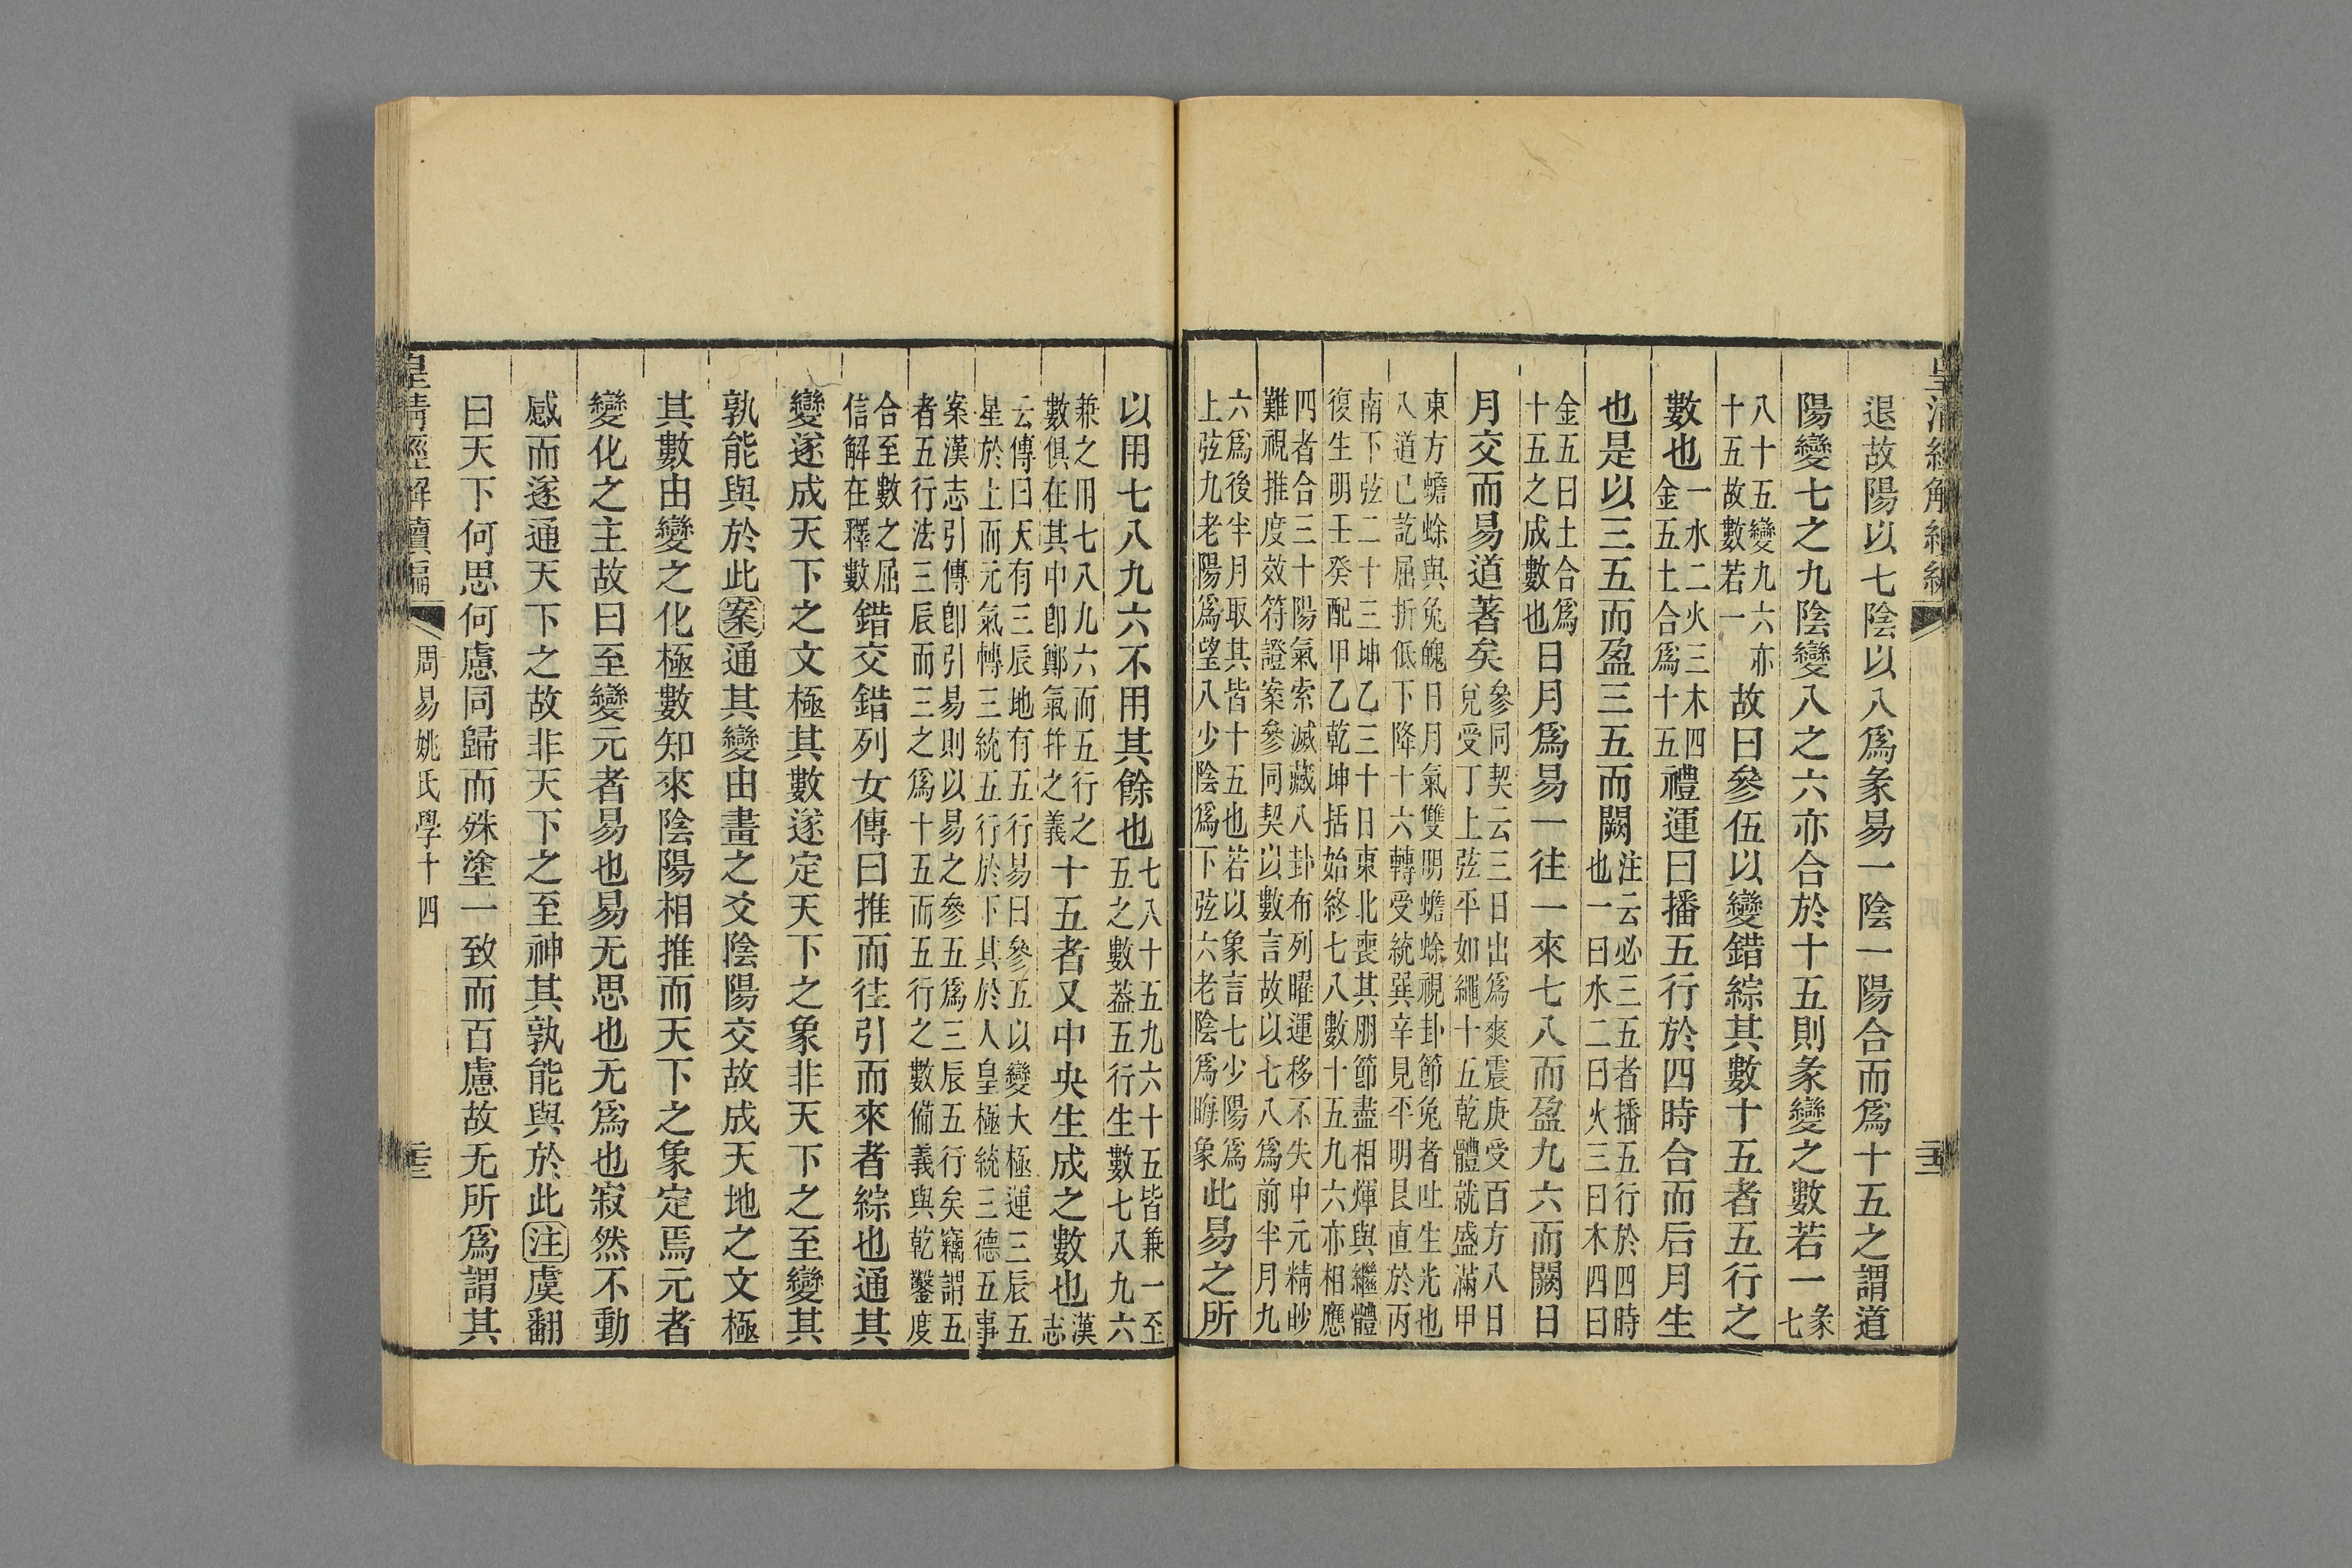 退故陽以七陰以八爲彖易一陰一陽合而爲十五之謂道
陽變七之九陰變八之六亦合於十五則彖變之數若一彖七
八十五變九六亦十五故數若一故曰參伍以變錯綜其數十五者五行之
數也一水二火三木四金五土合爲十五禮運曰播五行於四時合而后月生
也是以三五而盈三五而闕注云必三五者播五行於四時也一曰水二曰火三曰木四曰
金五曰土合爲十五之成數也日月爲易一往一來七八而盈九六而闕日
月交而易道著矣參同契云三日出爲爽震庚受百方八日兌受丁上弦平如繩十五乾體就盛滿甲
東方蟾蜍與兔魄日月氣雙明蟾蜍視卦節兔者吐生光也八道已訖屈折低下降十六轉受統巽辛見平明艮直於丙
南下弦二十三坤乙三十日東北喪其朋節盡相煇與繼體復生明壬癸配甲乙乾坤括始終七八數十五九六亦相應
四者合三十陽氣索滅藏八卦布列曜運移不失中元精眇難視推度效符證案參同契以數言故以七八爲前半月九
六爲後半月取其皆十五也若以象言七少陽爲上弦九老陽爲望八少陰爲下弦六老陰爲晦象此易之所
以用七八九六不用其餘也七八十五九六十五皆兼一至五之數蓋五行生數七八九六
兼之用七八九六而五行之數俱在其中卽鄭氣幷之義十五者又中央生成之數也漢志
云傳曰天有三辰地有五行易曰參五以變大極運三辰五星於上而元氣轉三統五行於下其於人皇極統三德五事
案漢志引傳卽引易則以易之參五爲三辰五行矣竊謂五者五行法三辰而三之爲十五而五行之數備義與乾鑿度
合至數之屈信解在釋數錯交錯列女傳曰推而往引而來者綜也通其
變遂成天下之文極其數遂定天下之象非天下之至變其
孰能與於此案通其變由畫之爻陰陽交故成天地之文極
其數由變之化極數知來陰陽相推而天下之象定焉元者
變化之主故曰至變元者易也易无思也无爲也寂然不動
感而遂通天下之故非天下之至神其孰能與於此注虞翻
曰天下何思何慮同歸而殊塗一致而百慮故无所爲謂其
皇清經解續編 周易姚氏學十四